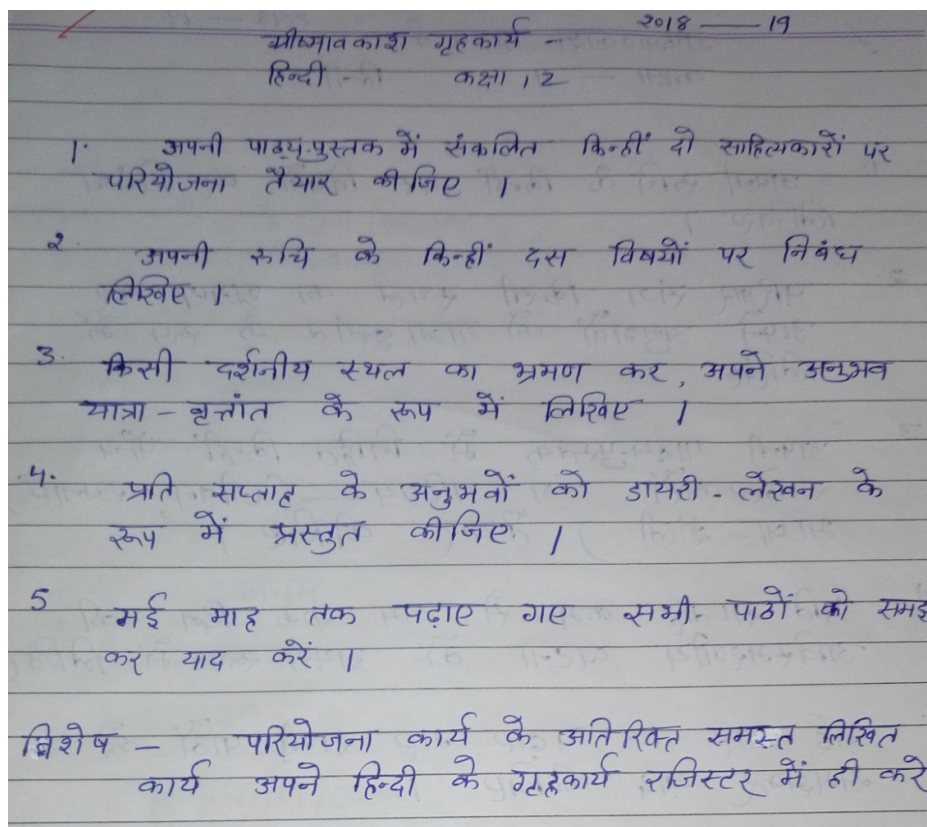 २०18 — 19
ग्रीष्मावकाश गृहकार्य -
हिन्दी - कक्षा 12
1. अपनी पाठ्य-पुस्तक में संकलित किन्हीं दो साहित्यकारों पर
परियोजना तैयार कीजिए ।
२. अपनी रुचि के किन्हीं दस विषयों पर निबंध
लिखिए ।
3. किसी दर्शनीय स्थल का भ्रमण कर, अपने अनुभव
यात्रा - वृत्तांत के रूप में लिखिए ।
4. प्रति सप्ताह के अनुभवों को डायरी - लेखन के
रूप में प्रस्तुत कीजिए ।
5 मई माह तक पढ़ाए गए सभी पाठों को समझ
कर याद करें ।
विशेष - परियोजना कार्य के अतिरिक्त समस्त लिखित
कार्य अपने हिन्दी के गृहकार्य रजिस्टर में ही करे